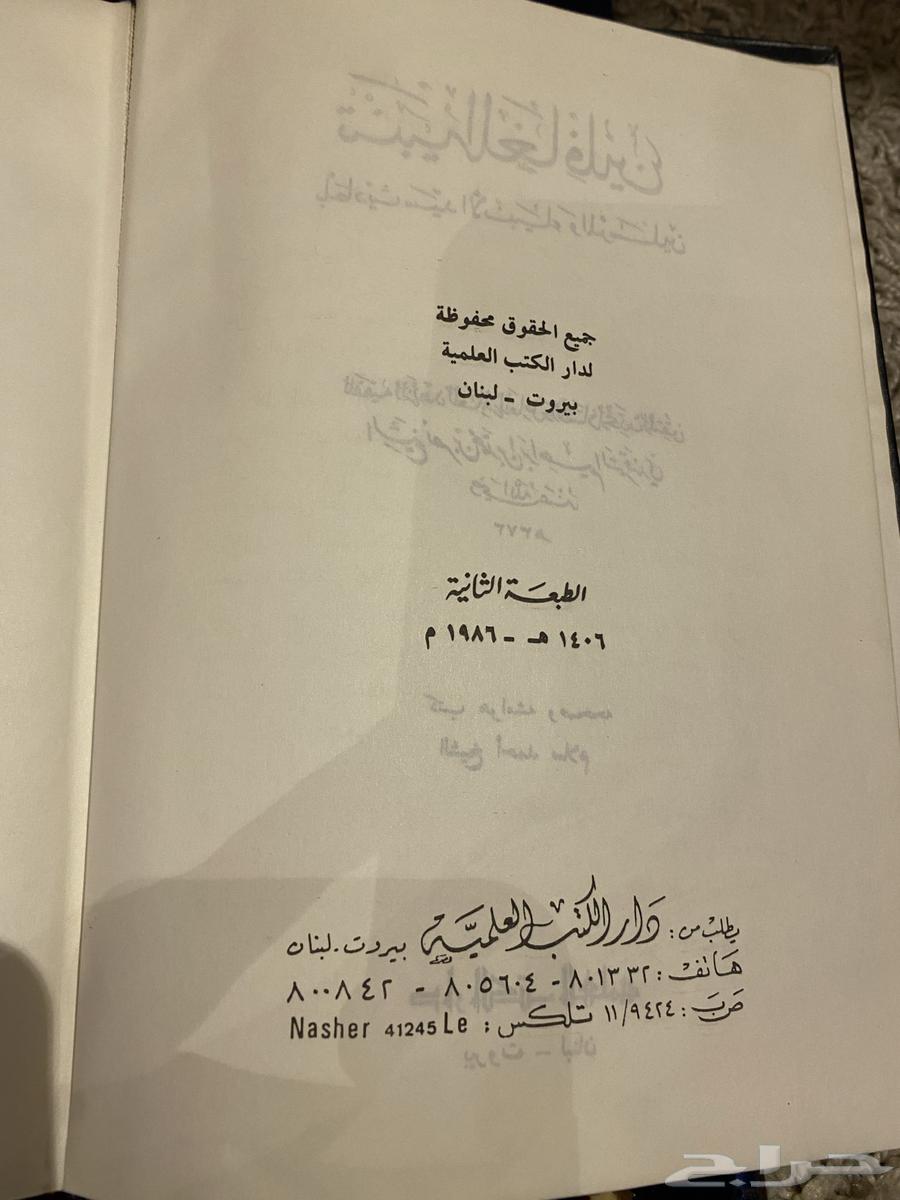 جميع الحقوق محفوظة
لدار الكتب العلمية
بيروت - لبنان
الطبعة الثانية
١٤٠٦ هـ - ١٩٨٦ م
يطلب من: دار الكتب العلمية بيروت - لبنان
هاتف: ٨٠١٣٣٢ - ٨٠٥٦٠٤ - ٨٠٠٨٤٢
صَ بَ: ١١/٩٤٢٤ تلكس: Nasher 41245 Le
حراج